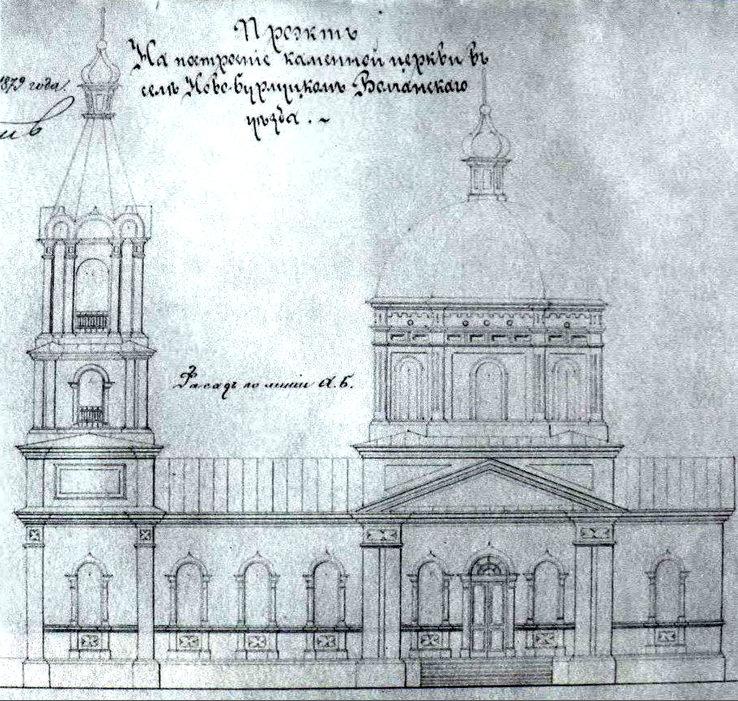 Проэктъ
На построеніе каменной церкви въ
селѣ Ново-Бурлуцкомъ Волчанскаго
уѣзда.
1879 года.
Фасадъ по линіи А.Б.